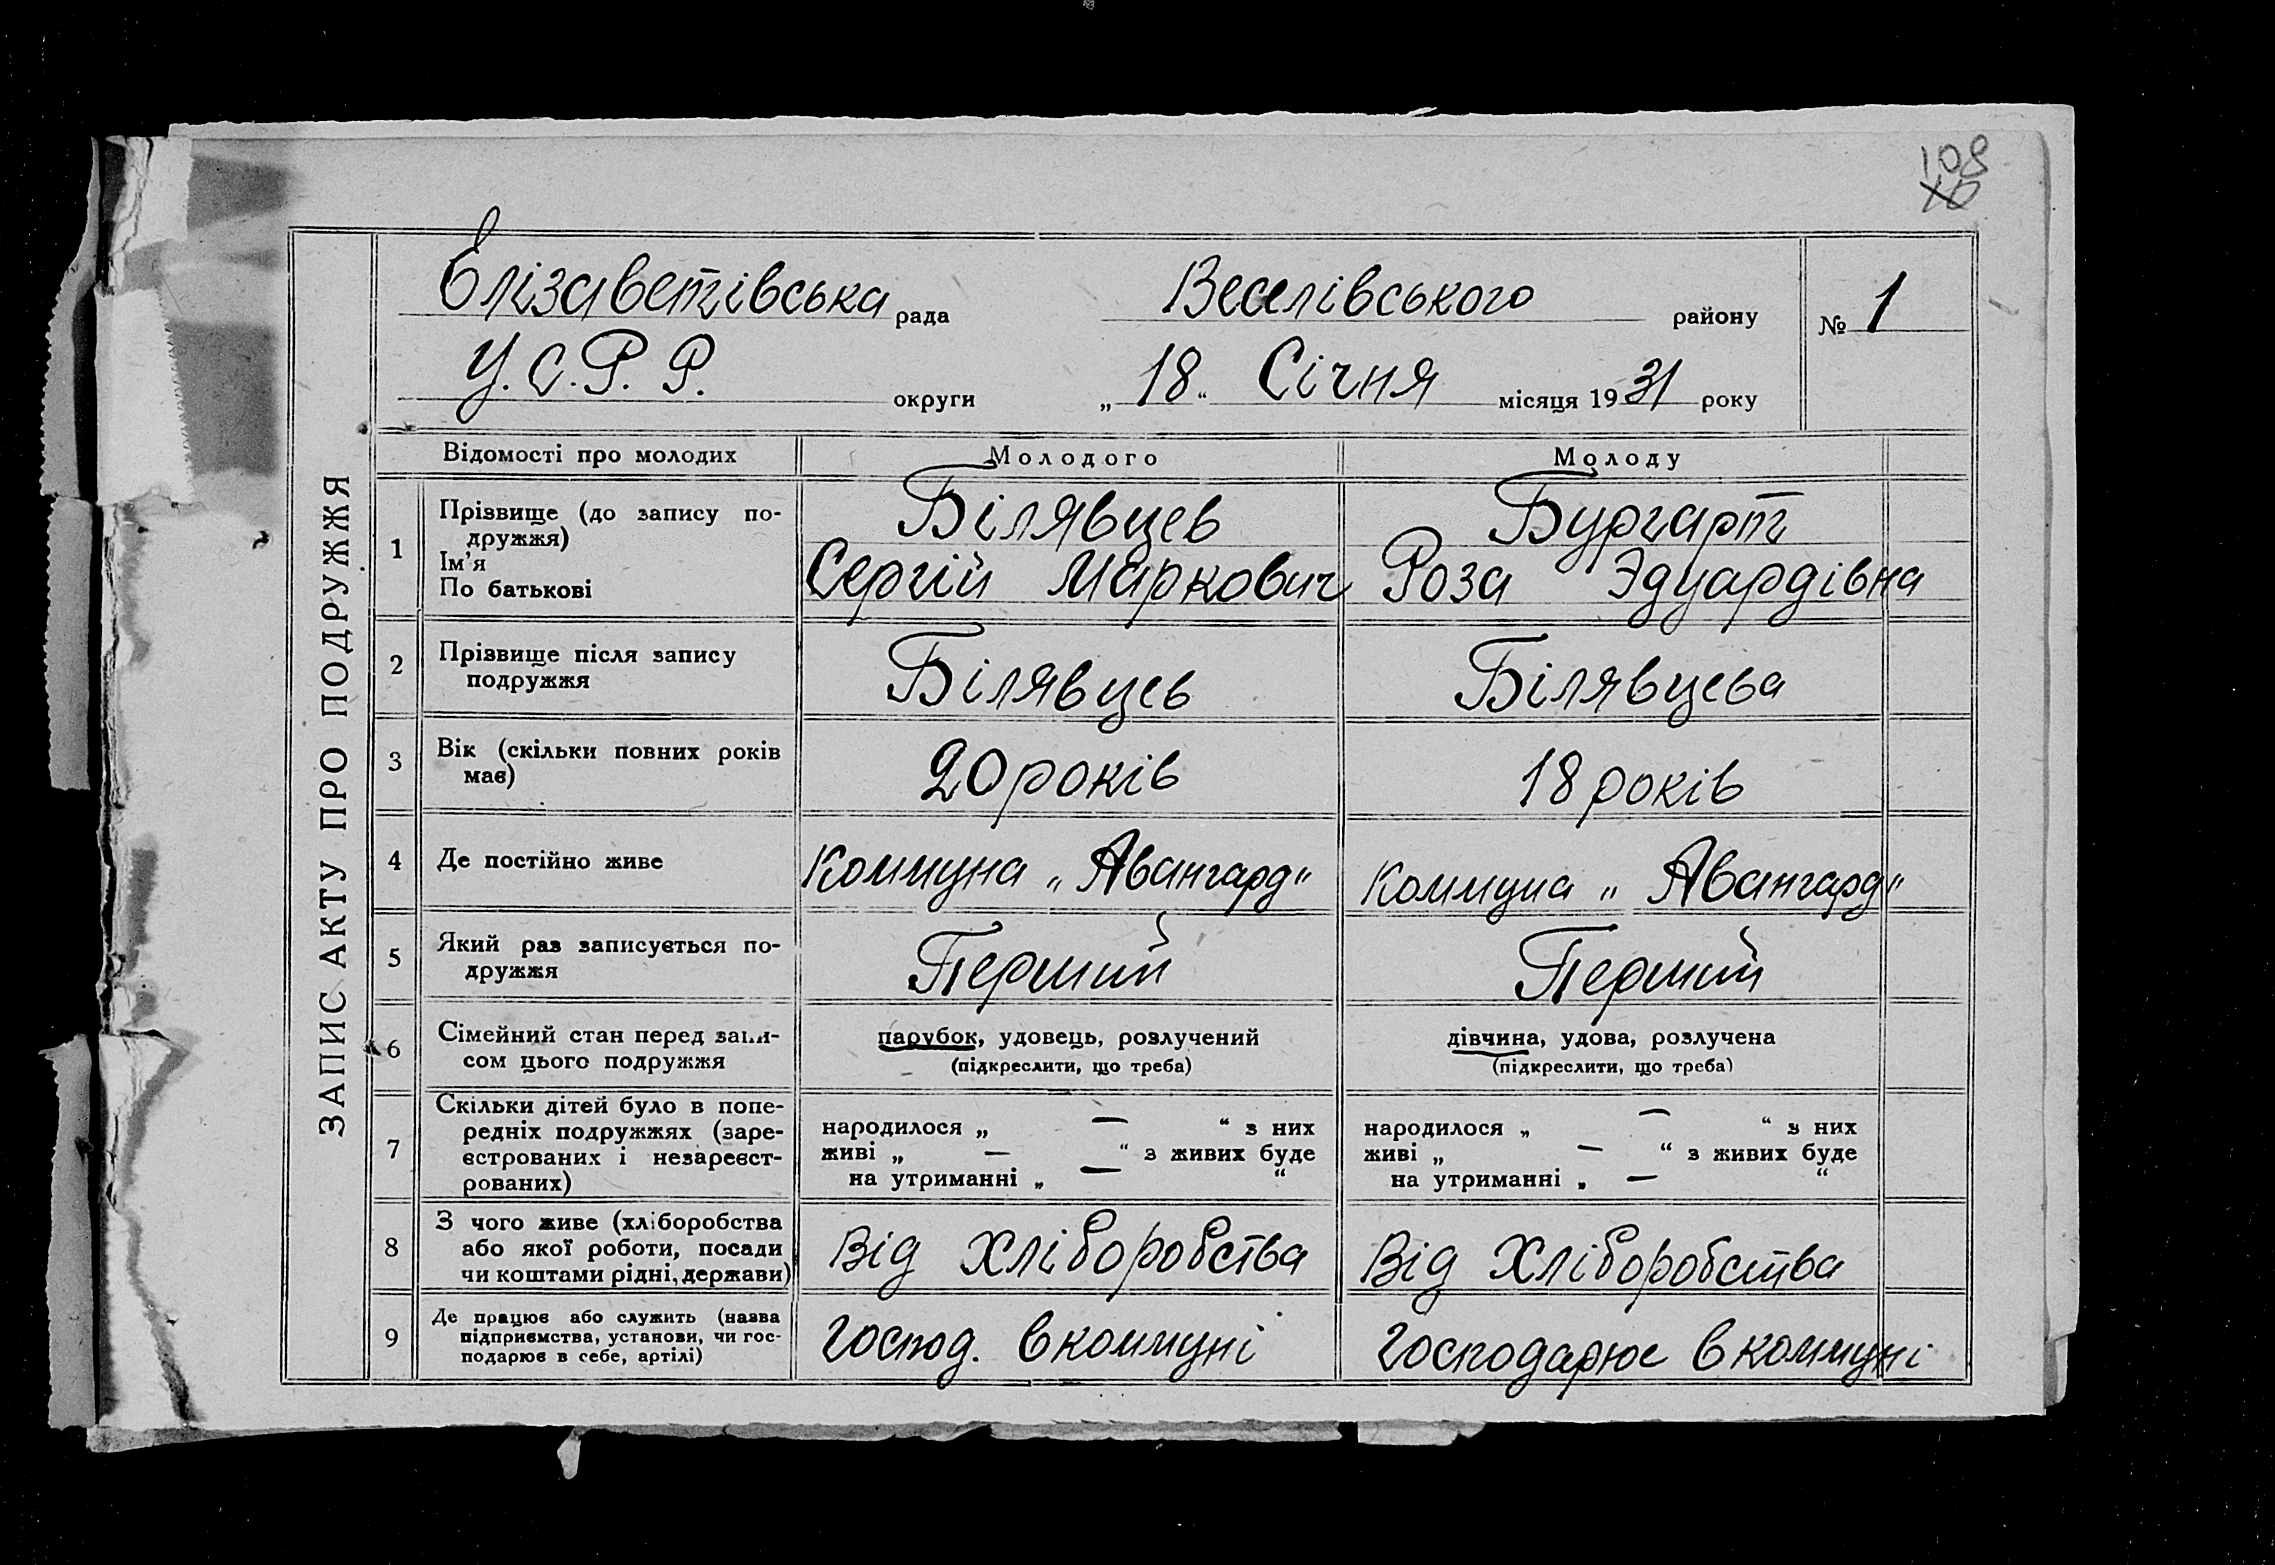 108
10
Єлізаветівська рада Веселівського району № 1
У.С.Р.Р. округи „ 18 “ Січня місяця 1931 року
ЗАПИС АКТУ ПРО ПОДРУЖЖЯ
Відомості про молодих Молодого Молоду
1 Прізвище (до запису по-
дружжя)
Ім'я
По батькові
Білявцев
Сергій Маркович
Бургарт
Роза Эдуардівна
2 Прізвище після запису
подружжя
Білявцев
Білявцева
3 Вік (скільки повних років
має)
20 років
18 років
4 Де постійно живе
Коммуна „Авангард"
Коммуна „Авангард"
5 Який раз записується по-
дружжя
Перший
Перший
6 Сімейний стан перед запи-
сом цього подружжя
парубок, удовець, розлучений
(підкреслити, що треба)
дівчина, удова, розлучена
(підкреслити, що треба)
7 Скільки дітей було в попе-
редніх подружжях (заре-
єстрованих і незареєст-
рованих)
народилося „ — “ з них
живі „ — “ з живих буде
на утриманні „ — “
народилося „ — “ з них
живі „ — “ з живих буде
на утриманні „ — “
8 З чого живе (хліборобства
або якої роботи, посади
чи коштами рідні, держави)
Від Хліборобства
Від Хліборобства
9 Де працює або служить (назва
підприємства, установи, чи гос-
подарює в себе, артілі)
Господ. в коммуні
Господарює в коммуні